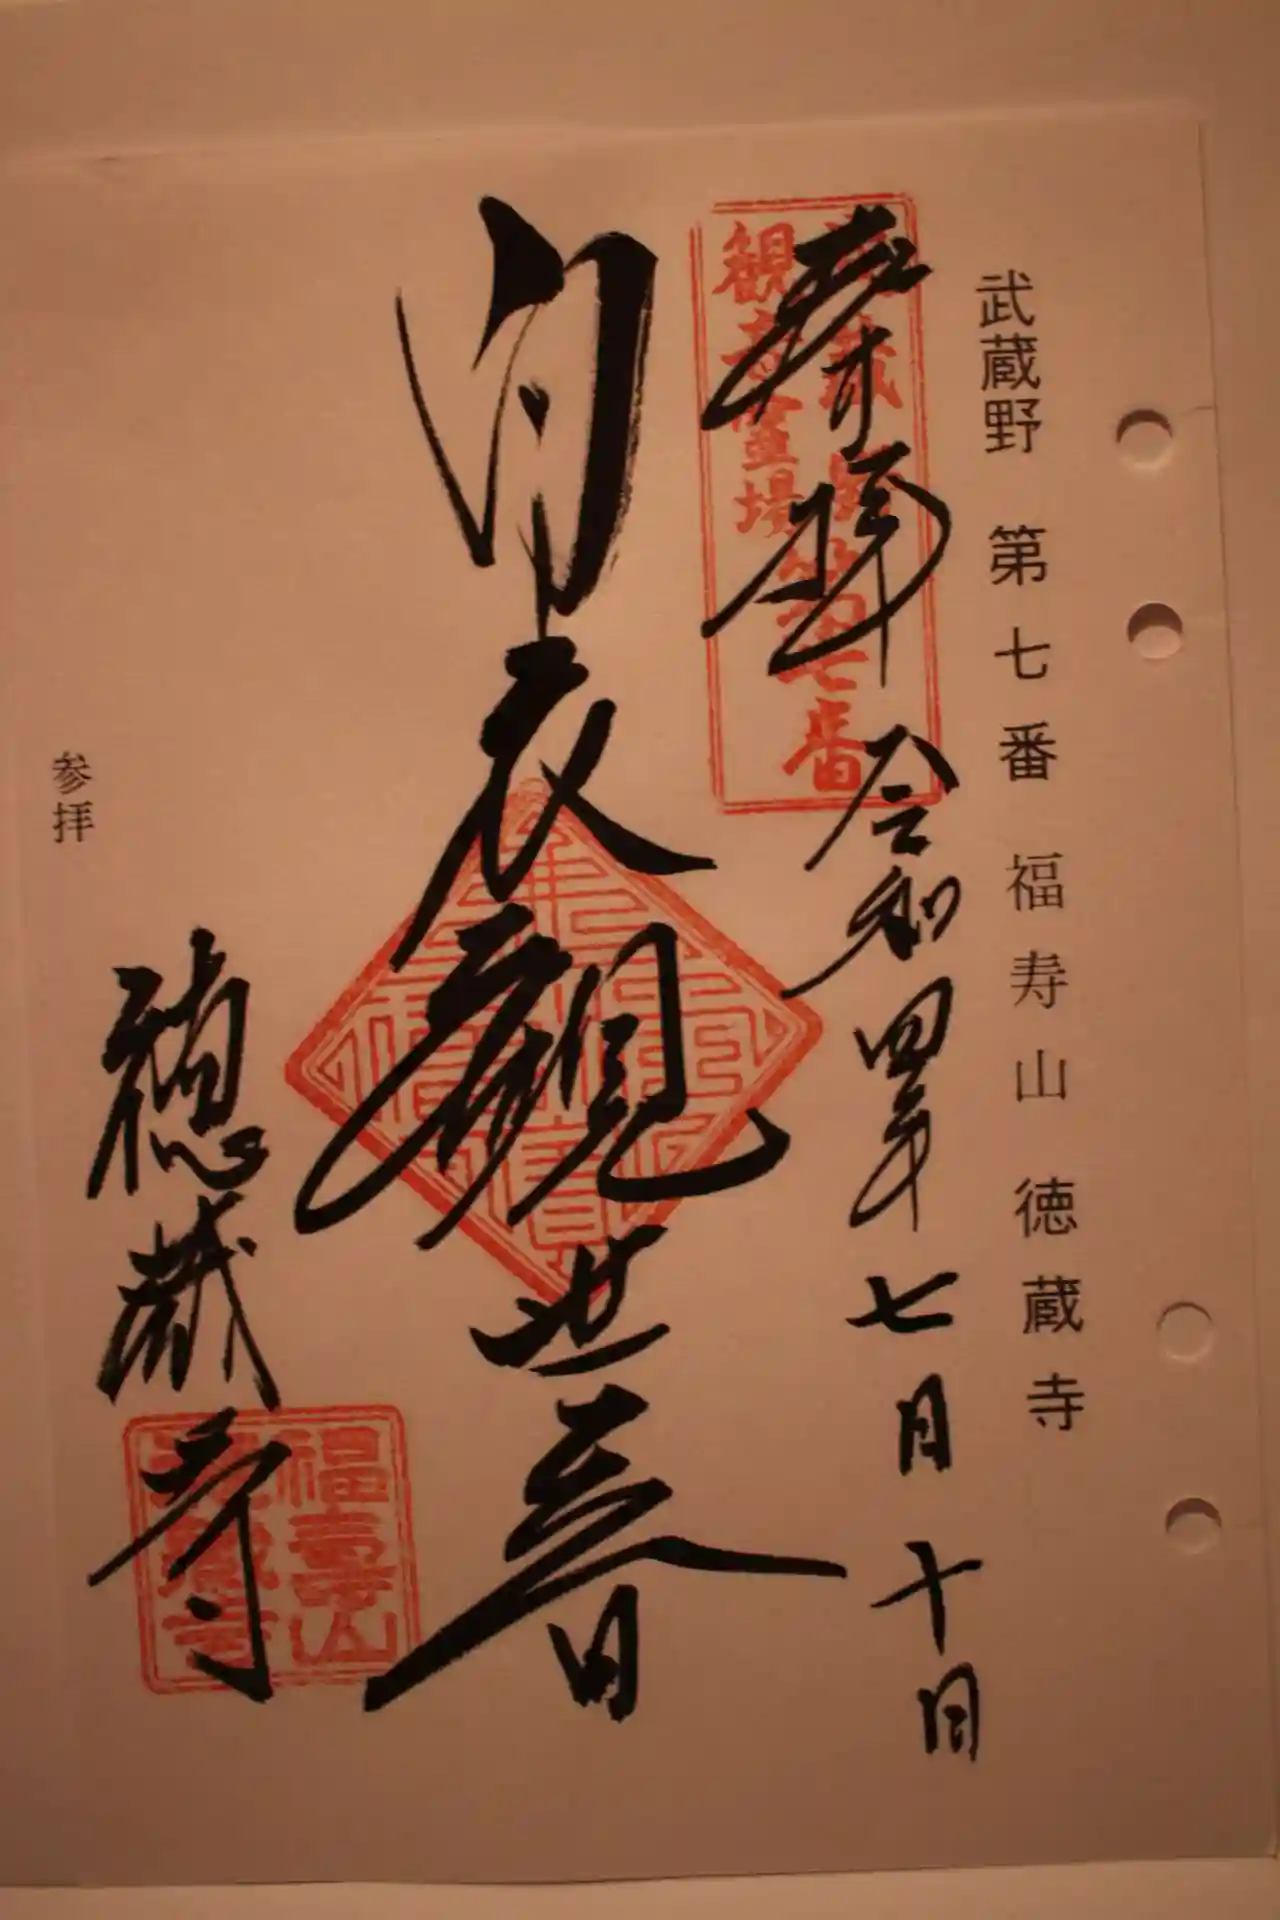 武蔵野 第七番 福寿山 徳蔵寺
奉拝 令和四年七月十日
武蔵野
観音霊場
第七番
白衣観世音
徳蔵寺
福寿山
徳蔵寺
参拝